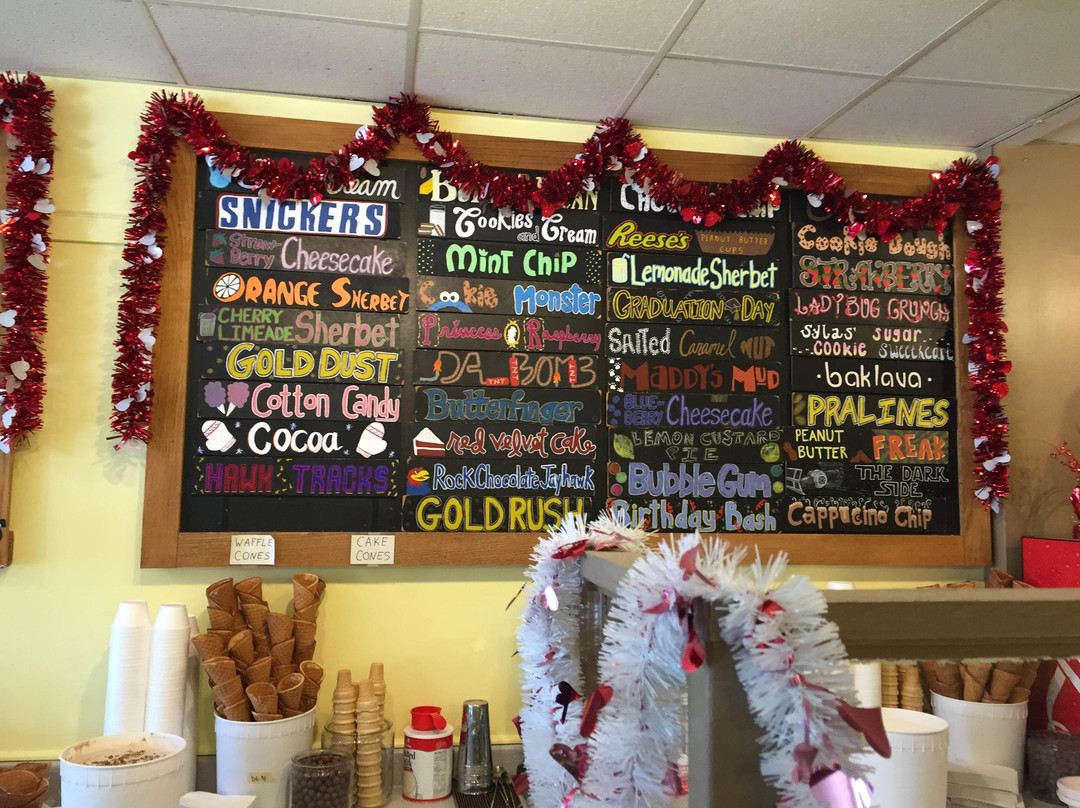 Cream
SNICKERS
STRAW-
BERRY Cheesecake
ORANGE SHERBET
CHERRY
LIMEADE Sherbet
GOLD DUST
Cotton Candy
Cocoa
HAWK TRACKS
Cookies and Cream
Mint Chip
Cookie Monster
Princess Raspberry
DA BOM3
TNT TNT TNT
Butterfinger
red velvet cake
Rock Chocolate Jayhawk
GOLD RUSH
Reese's PEANUT BUTTER
CUPS
Lemonade Sherbet
GRADUATION DAY
SALTED Caramel NUT
MADDY'S MUD
BLUE-
BERRY Cheesecake
LEMON CUSTARD
PIE
Bubble Gum
Birthday Bash
Cookie Dough
STRAWBERRY
LADYBUG CRUNCH
Sylas' sugar
cookie sweetheart
·baklava·
PRALINES
PEANUT
BUTTER FREAK
THE DARK
SIDE
Cappucino Chip
WAFFLE
CONES
CAKE
CONES